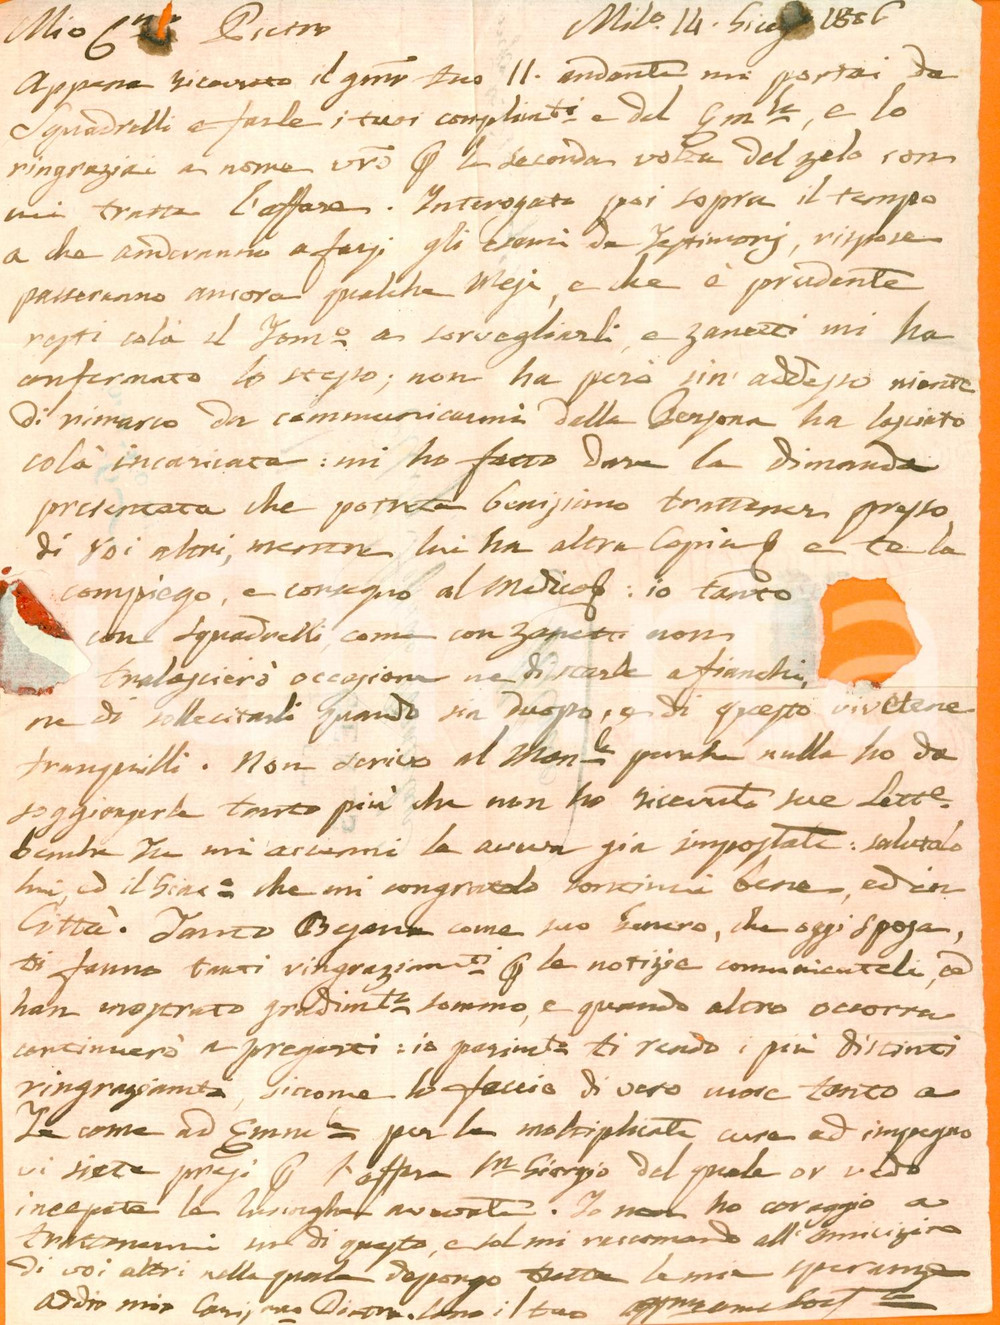 Mio C.mo Pietro Mil.o 14. Giug.o 1806
Appena ricevuto il gm.o tuo 11. andante mi portai da
Squadrelli a farle i tuoi complim.ti e del Em.le, e lo
ringraziai a nome vrõ p la seconda volta del zelo con
cui tratta l'affare. Interogata poi sopra il tempo
a che anderanno a farsi gli esami de Testimonj, rispose
passeranno ancora qualche Mesi, e che è prudente
resti colà il Tom.o a sorvegliarli, e Zanetti mi ha
confermato lo stesso; non ha però sin' addesso niente
di rimarco da communicarmi dalla Persona ha lasciato
colà incaricata: mi ho fatto dare la dimanda
presentata che potrete benissimo trattener presso
di voi altri, mentre lui ha altra Copia e te la
compiego, e consegno al Medico: io tanto
con Squadrelli, come con Zanetti non
tralascierò occasione ne di starle a fianchi,
ne di sollecitarli quando sia duopo, e di questo vivetene
tranquilli. Non scrivo al perche nulla ho da
soggiongerle tanto più che non ho ricevuta sue Lett.e
benche Tu mi accenni le aveva già impostate: salutalo
lui, ed il che mi congratulo continui bene, ed in
Città. Tanto come suo Genero, che oggi sposa,
ti fanno tanti ringraziam.ti p le notizie comunicateli, ed
han mostrato gradim.to sommo, e quando altro occorra
continuerò a pregarti: io parim.te ti rendo i più distinti
ringraziam.ti, siccome lo faccio di vero cuore tanto a
Te come ad Em.le per le moltiplicate cure ad impegno
vi siete presi p l'affare S. Giorgio del quale or vedo
incepate le lusinghe avvocate. Io non ho coraggio a
trattenermi su di questo, e sol mi raccomando all'amicizia
di voi altri nella quale depongo tutta la mia speranza
addio mio Carissimo Pietro. Sono il tuo